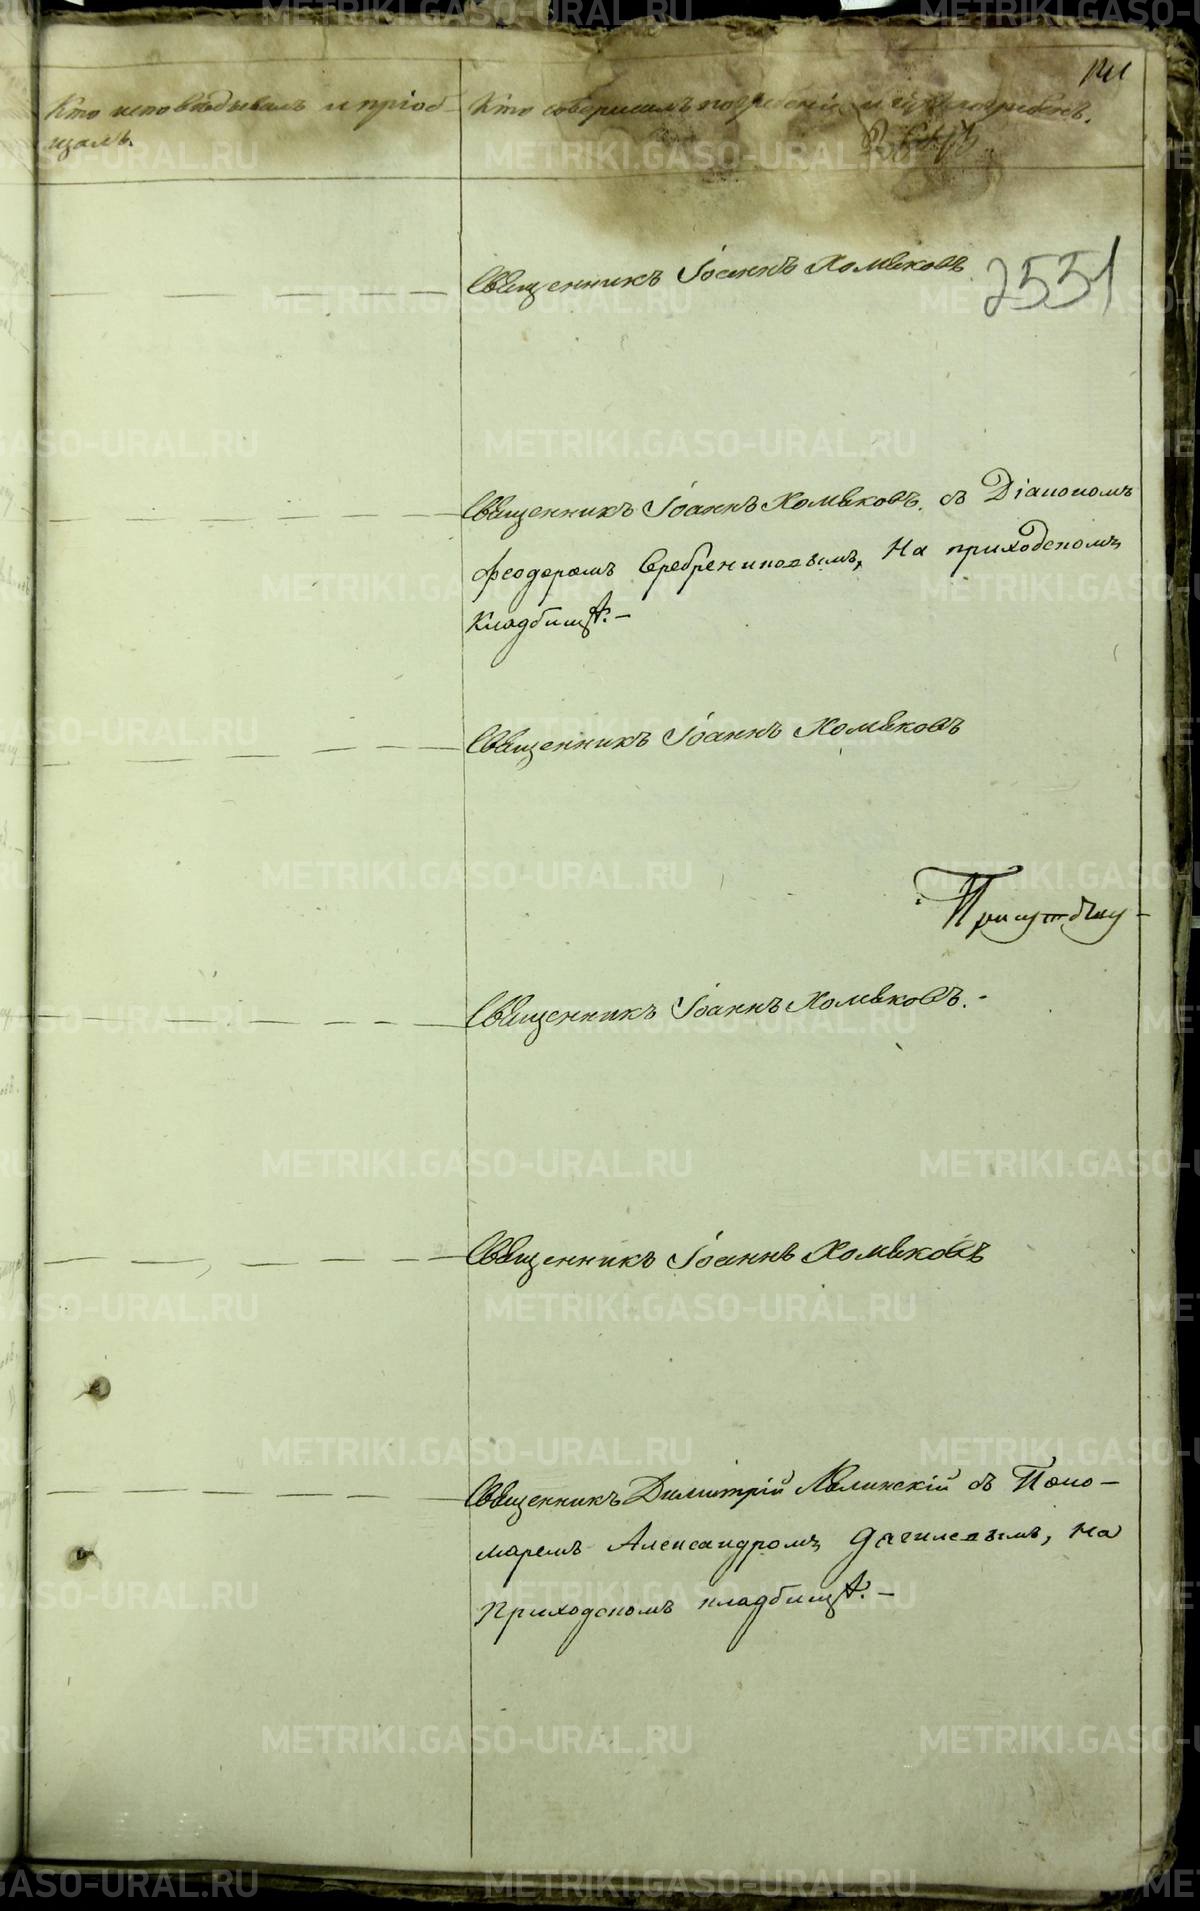 Кто исповѣдывалъ и пріоб-
щалъ.
Кто совершалъ погребеніе и гдѣ погребенъ.
2551
Священникъ Іоаннъ Хомяковъ
Священникъ Іоаннъ Хомяковъ. съ Діакономъ
Феодоромъ Серебрениковымъ, На приходскомъ
Кладбищѣ. —
Священникъ Іоаннъ Хомяковъ
Священникъ Іоаннъ Хомяковъ. -
Священникъ Іоаннъ Хомяковъ
Священникъ Димитрій съ Поно-
маремъ Александромъ на
Приходскомъ кладбищѣ. —
METRIKI.GASO-URAL.RU